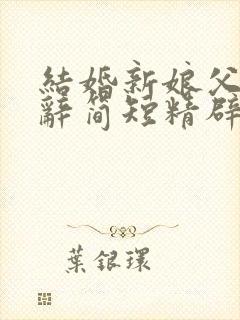 結婚新娘父
辭簡短精辟
葉銀環